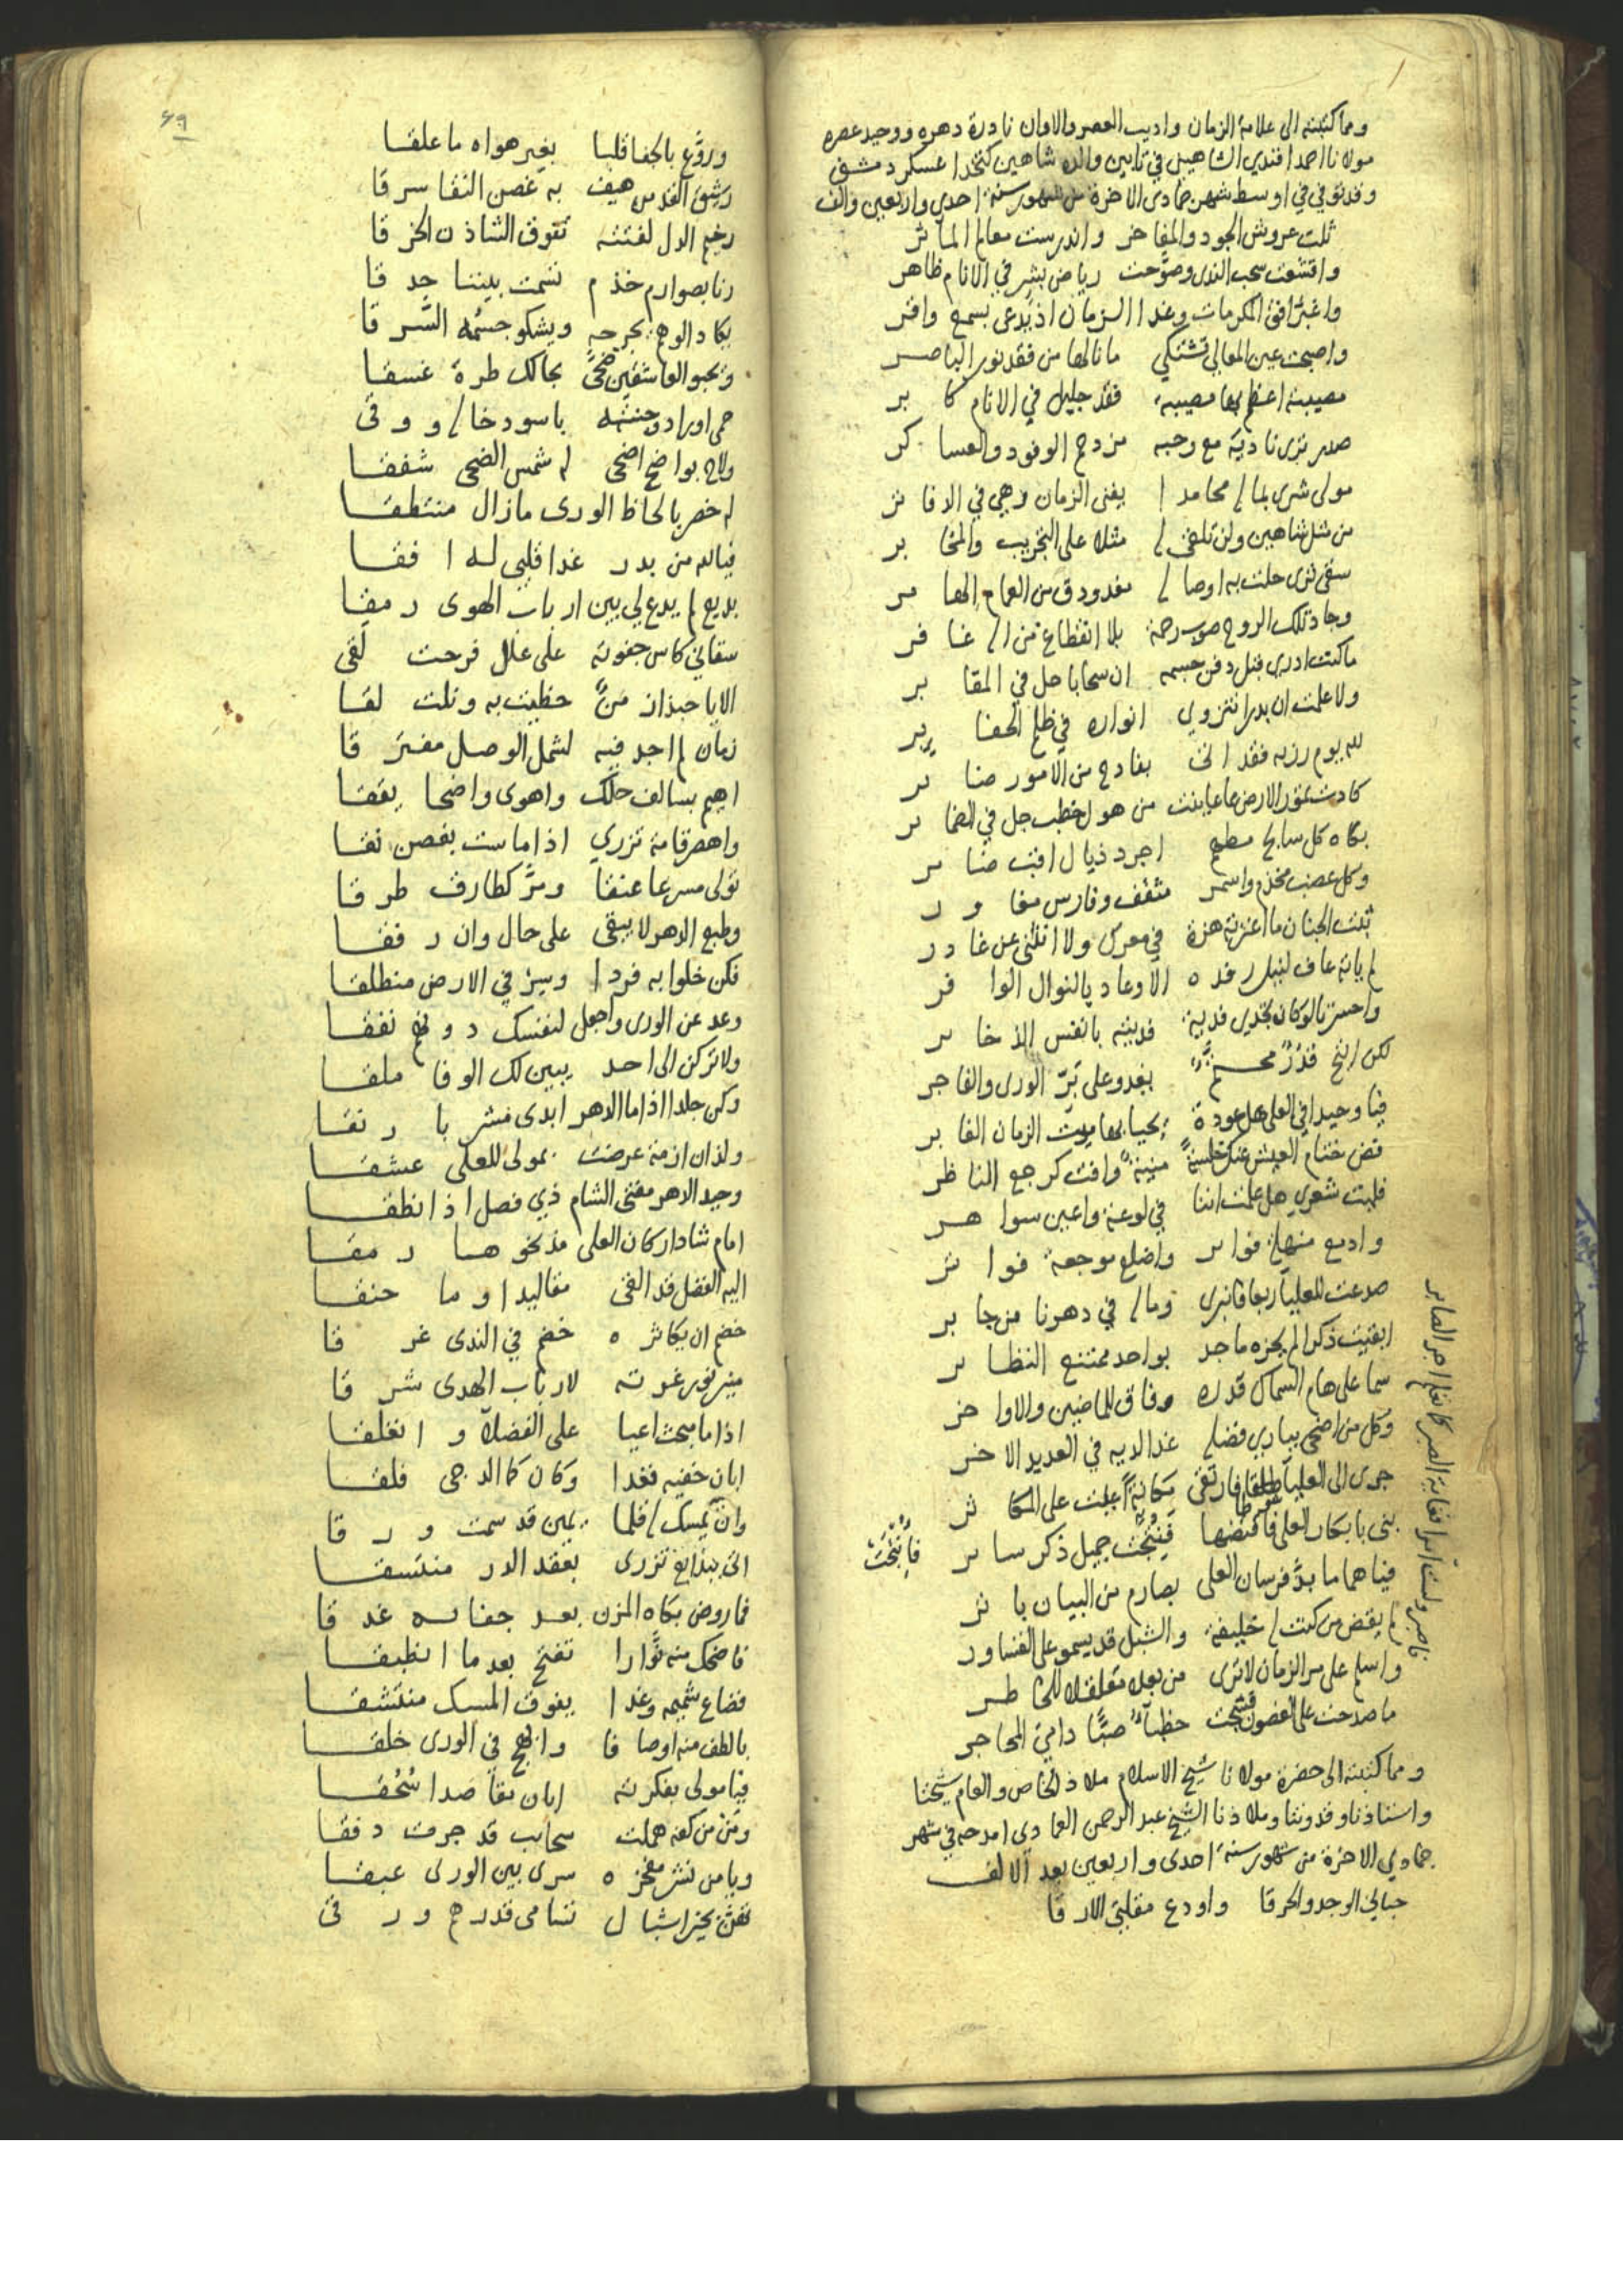 ومما كتبته الى علامة الزمان واديب العصر والاوان نادرة دهره ووحيد عصره
مولانا احمد افندي الشاهيني في تابين والده شاهين كتخدا عسكر دمشق
وقد توفي في اوسط شهر جمادى الاخرة من شهور سنة احدى واربعين والف
ثلت عروش الجود والمفاخر واندرست معالم المآثر
واقتشعت سحب الندى وصوحت رياض بشر في الانام ظاهر
واغبر افق المكرمات وغدا الزمان اذ يدعى بسمع واقر
واصبحت عين المعالي تشتكي ما نالها من فقد نور الباصر
مصيبة اعظم بها مصيبة فقد جليل في الانام كابر
صدر ترى ناديه مع رحبه مزدحم الوفود والعساكر
مولى شرى بماله محامدا يفنى الزمان وهي في الدفاتر
من مثل شاهين ولن تلفي له مثلا على التجريب والمخابر
سقى ثرى حلت به اوصاله مغدودق من الغمام الهامر
وجاد تلك الروح صوب رحمة بلا انقطاع من اله غافر
ما كنت ادري قبل دفن جسمه ان سحابا حل في المقابر
ولا علمت ان بدرا تنزوي انواره في ظلم الحفاير
لله يوم رزيه فقد اتى بفادح من الامور ضاير
كادت تمور الارض مما عاينت من هول خطب جل في الضماير
بكاه كل سابح مطهم اجرد ذيال اقب ضامر
وكل عضب مخذم واسمر مثقف وفارس مغاور
ثبت الجنان ما اعترته هزة في معرك ولا انثنى عن غادر
لم ياته عاف لنيل رفده الا وعاد بالنوال الوافر
واحسرتا لو كان يجدي فدية فديته بانفس الذخاير
لكن اتيح قدر محتم يغدو على بر الورى والفاجر
فيا وحيدا في العلى هل عودة يحيا بها ميت الزمان الغابر
فض ختام العيش عنك خلسة منية وافت كرجع الناظر
فليت شعري هل علمت اننا في لوعة واعين سواهر
وادمع منهلة فواير واضلع موجعة فواتر
صدعت للعلياء ربعا فانبرى وماله في دهرنا من جابر
ابقيت ذكرا لم يحزه ماجد بواحد ممتنع النظاير
سما على هام السماك قدره وفاق للماضين والاواخر
وكل من اضحى يباري فضله غدا لديه في العديد الاخر
جرى الى العلياء طلقا فارتقى مكانة اعلت على المكاثر
بنى بابكار العلى فاقتضها فنتجت جميل ذكر ساير
فانتجت
فيا هماما بذ فرسان العلى بصارم من البيان باتر
لم يقض من كنت له خليفة والشبل قد يسمو على القساور
واسلم على مر الزمان لا ترى من بعده مقلقلا للخاطر
ما صدحت على الغصون فشجت خطباء صبا دامي المحاجر
ناصر ولست امرا فغاية الصبر كما نعلم اجر الصابر
ومما كتبته الى حضرة مولانا شيخ الاسلام ملاذ الخاص والعام شيخنا
واستاذنا وقدوتنا وملاذنا الشيخ عبد الرحمن العمادي امدحه في شهر
جمادي الاخرة من شهور سنة احدى واربعين بعد الالف
حبالي الوجد والحرقا واودع مقلتي الارقا
٤٩
وروع بالجفا قلبا بغير هواه ما علقا
رشيق القد من هيف به غصن النقا سرقا
رخيم الدل لفتته تفوق الشاذن الخرقا
رنا بصوارم خذم نشمت بيننا حدقا
يكاد الوهم يجرحه ويشكو جسمه السرقا
ويحبو العاشقين ضحى بحالك طرة غسقا
حمى اوراد وجنته باسود خاله ووقى
ولاح بواضح اضحى له شمس الضحى شفقا
له خصر بالحاظ الورى ما زال منتطقا
فيا له من بدر غدا قلبي له افقا
بديع لم يدع لي بين ارباب الهوى رمقا
سقاني كاس جفوته على علل فرحت لقى
الا يا حبذا زمن حظيت به ونلت لقا
زمان لم اجد فيه لشمل الوصل مفترقا
اهيم بسالف حلك واهوى واضحا يققا
واهصر قامة تزري اذا ماست بغصن نقا
تولى مسرعا عنقا ومر كطارف طرقا
وطبع الدهر لا يبقى على حال وان رفقا
فكن خلوا به فردا وسر في الارض منطلقا
وعد عن الورى واجعل لنفسك دونهم نفقا
ولا تركن الى احد يبين لك الوفا ملقا
وكن جلدا اذا ما الدهر ابدى مشربا رنقا
ولذ ان ازمة عرضت بمولى للعلى عشقا
وحيد الدهر مفتي الشام ذي فصل اذا نطقا
امام شاد اركان العلى مذ نحوها رمقا
اليه الفضل قد القى مقاليدا وما حنقا
خضم ان يكاثره خضم في الندى غرقا
منير نور غرته لارباب الهدى شرقا
اذا ما مبحث اعيا على الفضلاء وانغلقا
ابان خفيه فغدا وكان كما الدجى فلقا
وان يمسك له قلما يمين قد سمت ورقا
اتى ببدايع تزرى بعقد الدر منتسقا
فما روض بكاه المزن بعد جفائه غدقا
فاضحك منه نوارا تفتح بعد ما انطبقا
فضاع شميمه وغدا يفوق المسك منتشقا
بالطف منه اوصافا وابهج في الورى خلقا
فيا مولى بفكرته ابان صدا سحقا
ومن من كفه هملت سحائب قد جرت دفقا
ويا من نشر مفخره سرى بين الورى عبقا
تهن بخير اشبال تسامى قدرهم ورقى